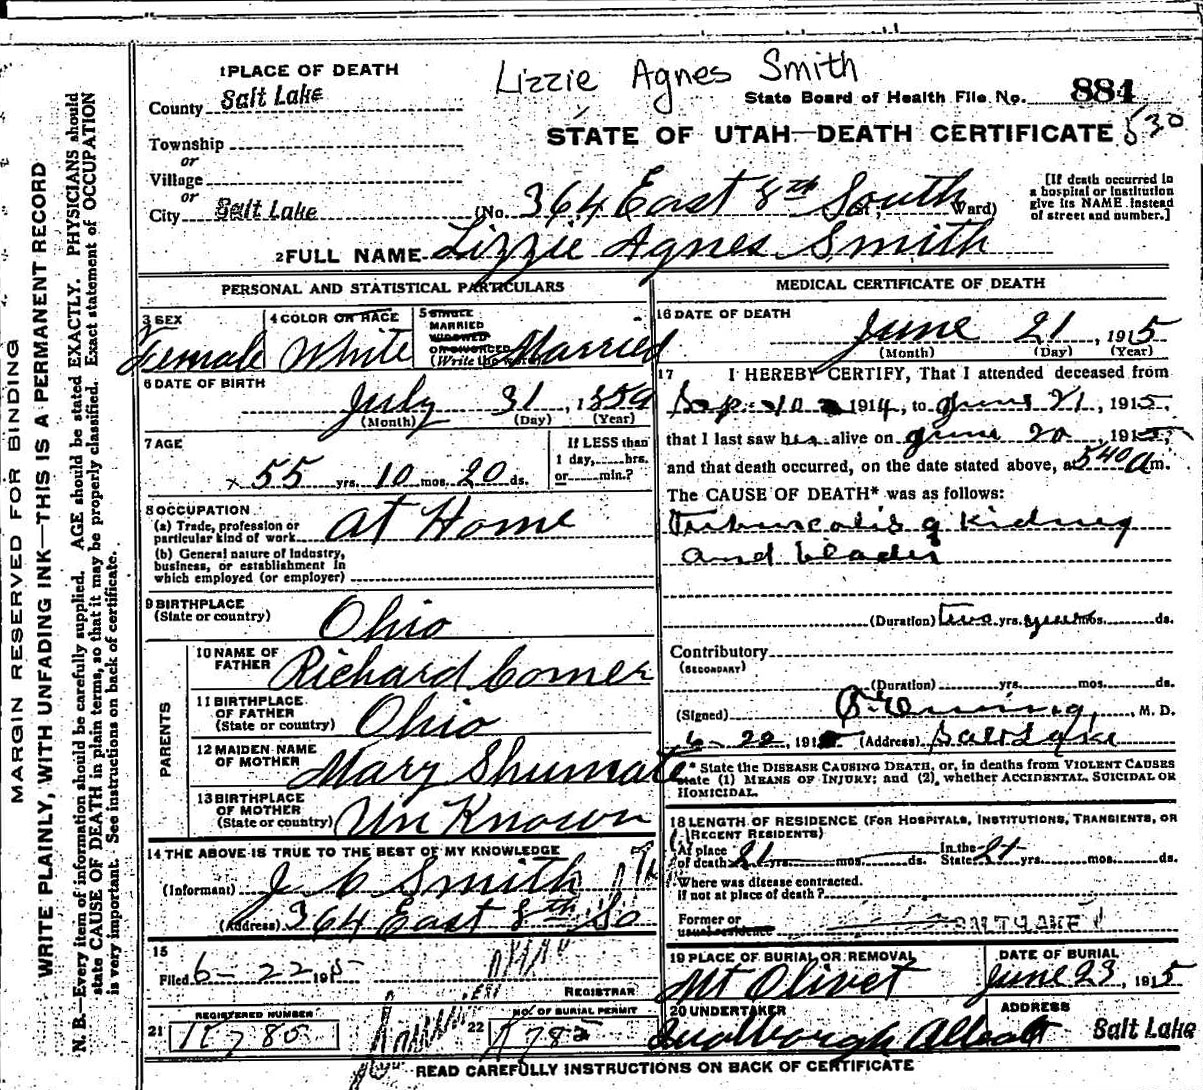 Lizzie Agnes Smith
1 PLACE OF DEATH
County Salt Lake
State Board of Health File No. 884
Township
STATE OF UTAH—DEATH CERTIFICATE 530
or
Village
or
City Salt Lake (No. 364 East 8th South St; Ward)
[If death occurred in
a hospital or institution
give its NAME instead
of street and number.]
2 FULL NAME Lizzie Agnes Smith
PERSONAL AND STATISTICAL PARTICULARS
3 SEX
Female
4 COLOR OR RACE
White
5 SINGLE
MARRIED
WIDOWED
OR DIVORCED
(Write the word)
Married
6 DATE OF BIRTH
July 31, 1859
(Month) (Day) (Year)
7 AGE
55 yrs. 10 mos. 20 ds.
If LESS than
1 day, hrs.
or min.?
8 OCCUPATION
(a) Trade, profession or
particular kind of work At Home
(b) General nature of Industry,
business, or establishment in
which employed (or employer)
9 BIRTHPLACE
(State or country) Ohio
PARENTS
10 NAME OF
FATHER Richard Comer
11 BIRTHPLACE
OF FATHER
(State or country) Ohio
12 MAIDEN NAME
OF MOTHER Mary Shumate
13 BIRTHPLACE
OF MOTHER
(State or country) Un Known
14 THE ABOVE IS TRUE TO THE BEST OF MY KNOWLEDGE
(Informant) J C Smith
(Address) 364 East 8th So
15
Filed 6-22 1915
REGISTRAR
REGISTERED NUMBER
21 K785
NO. OF BURIAL PERMIT
22 K785
MEDICAL CERTIFICATE OF DEATH
16 DATE OF DEATH
June 21, 1915
(Month) (Day) (Year)
17 I HEREBY CERTIFY, That I attended deceased from
Sep. 10 1914, to June 21, 1915,
that I last saw her alive on June 20, 1915,
and that death occurred, on the date stated above, at 540 a m.
The CAUSE OF DEATH* was as follows:
Tuberculosis of Kidney
and bladder
(Duration) two yrs. years mos. ds.
Contributory
(SECONDARY)
(Duration) yrs. mos. ds.
(Signed) M. D.
6-20, 1915 (Address) Salt Lake
* State the DISEASE CAUSING DEATH, or, in deaths from VIOLENT CAUSES
state (1) MEANS OF INJURY; and (2), whether ACCIDENTAL, SUICIDAL OR
HOMICIDAL.
18 LENGTH OF RESIDENCE (FOR HOSPITALS, INSTITUTIONS, TRANSIENTS, OR
RECENT RESIDENTS)
At place
of death 21 yrs. mos. ds.
In the
State 21 yrs. mos. ds.
Where was disease contracted.
if not at place of death?
Former or
usual residence
19 PLACE OF BURIAL OR REMOVAL
Mt Olivet
DATE OF BURIAL
June 23, 1915
20 UNDERTAKER
ADDRESS
Salt Lake
READ CAREFULLY INSTRUCTIONS ON BACK OF CERTIFICATE
MARGIN RESERVED FOR BINDING
WRITE PLAINLY, WITH UNFADING INK—THIS IS A PERMANENT RECORD
N. B.—Every item of information should be carefully supplied. AGE should be stated EXACTLY. PHYSICIANS should
state CAUSE OF DEATH in plain terms, so that it may be properly classified. Exact statement of OCCUPATION
is very important. See instructions on back of certificate.